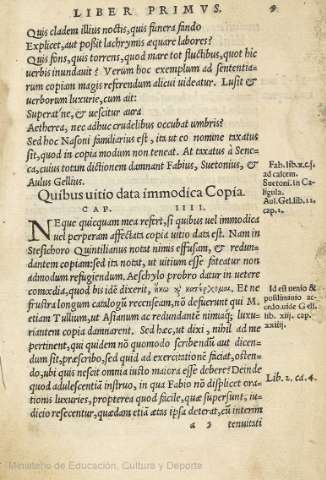 LIBER PRIMVS. 9
Quis cladem illius noctis, quis funera fando
Explicet, aut possit lachrymis æquare labores?
Quis fons, quis torrens, quod mare tot fluctibus, quot hic
verbis inundauit? Verum hoc exemplum ad sententia-
rum copiam magis referendum alicui uideatur. Lusit &
uerborum luxurie, cum ait:
Superat'ne, & uescitur aura
Aetherea, nec adhuc crudelibus occubat umbris?
Sed hoc Nasoni familiarius est, ita ut eo nomine taxatus
sit, quod in copia modum non teneat. At taxatus à Sene-
ca, cuius totum dictionem damnant Fabius, Suetonius, &
Aulus Gellius.
Fab. lib. x. c. j.
ad calcem.
Suetoni. in Ca-
ligula.
Aul. Gel. lib. 12,
cap. 2.
Quibus uitio data immodica Copia.
CAP. IIII.
NEque quicquam mea refert, si quibus uel immodica
uel perperam affectata copia uitio data est. Nam in
Stesichoro Quintilianus notat nimis effusam, & redun-
dantem copiam: sed ita notat, ut uitium esse fateatur non
admodum refugiendum. Aeschylo probro datur in uetere
comœdia, quod bis idē dixerit, ἥκω κỳ κατέρχομαι. Et ne
frustra longum catalogū recenseam, nō defuerunt qui M.
etiam Tullium, ut Asianum ac redundantē nimiaq; luxu-
riantem copia damnarent. Sed hæc, ut dixi, nihil ad me
pertinent, qui quidem nō quomodo scribendū aut dicen-
dum sit, præscribo, sed quid ad exercitationē faciat, osten-
do, ubi quis nescit omnia iusto maiora esse debere? Deinde
quod adulescentiā instruo, in qua Fabio nō displicet orat-
ionis luxuries, propterea quod facile, quæ supersunt, iu-
dicio resecentur, quædam etiā ætas ipsa deterat, cū interim
Id est uenio &
postliminio ac-
cedo. uide Gell.
lib. xiij. cap.
xxiiij.
Lib. 2. ca. 4.
a 3 tenuitati
Ministerio de Educación, Cultura y Deporte